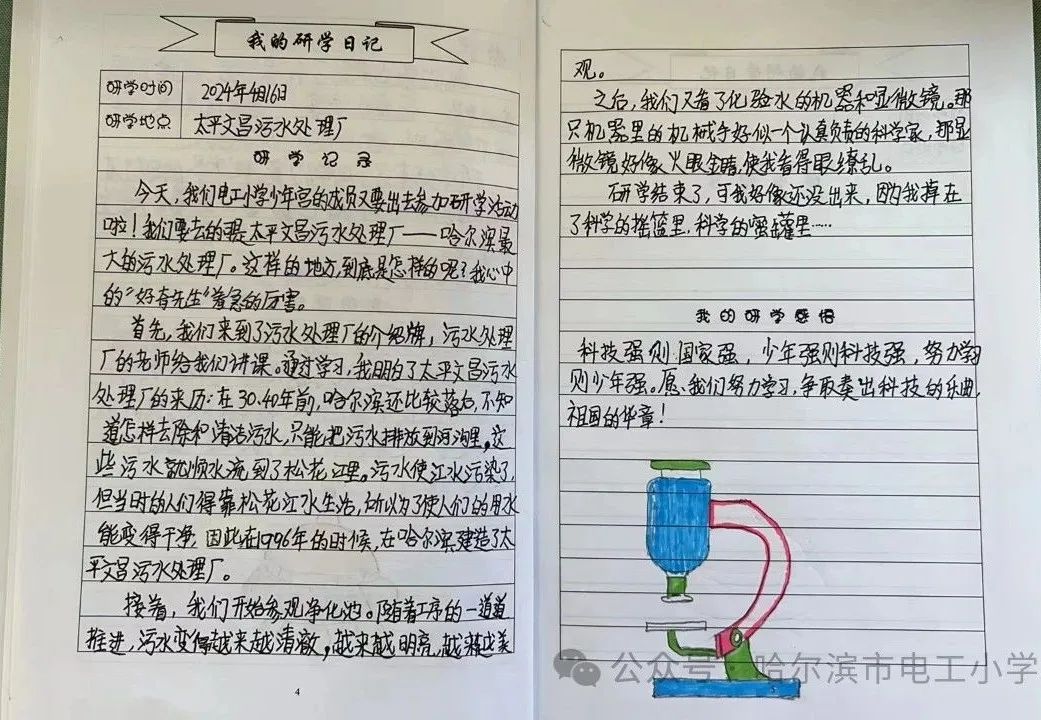 我的研学日记
研学时间 2024年4月16日
研学地点 太平文昌污水处理厂
研学记录
今天，我们电工小学少年宫的成员又要出去参加研学活动
啦！我们要去的是太平文昌污水处理厂——哈尔滨最
大的污水处理厂。这样的地方，到底是怎样的呢？我心中
的“好奇先生”着急的厉害。
首先，我们来到了污水处理厂的介绍牌，污水处理
厂的老师给我们讲课。通过学习，我明白了太平文昌污水
处理厂的来历：在30、40年前，哈尔滨还比较落后，不知
道怎样去除和清洁污水，只能把污水排放到河沟里，这
些污水就顺水流到了松花江里。污水使江水污染了，
但当时的人们得靠松花江水生活，所以为了使人们的用水
能变得干净，因此在1996年的时候，在哈尔滨建造了太
平文昌污水处理厂。
接着，我们开始参观净化池。随着工序的一道道
推进，污水变得越来越清澈，越来越明亮，越来越美
4
观。
之后，我们又看了化验水的机器和显微镜。那
只机器里的机械手好似一个认真负责的科学家，那显
微镜好像火眼金睛，使我看得眼缭乱。
研学结束了，可我好像还没出来，因为我掉在
了科学的摇篮里，科学的蜜罐里……
我的研学感悟
科技强则国家强，少年强则科技强，努力学习
则少年强。愿我们努力学习，争取奏出科技的乐曲，
祖国的华章！
公众号·哈尔滨市电工小学